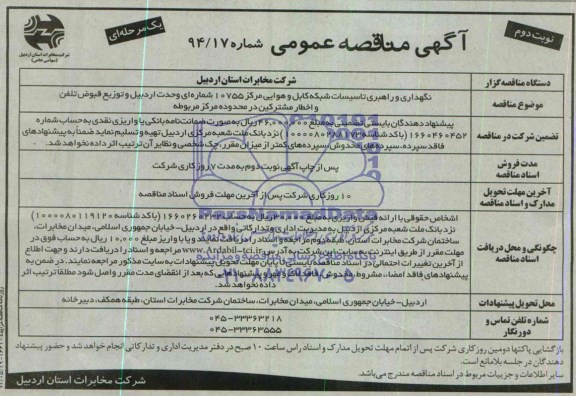 نوبت دوم
آگهی مناقصه عمومی شماره ۹۴/۱۷
یک مرحله‌ای
شرکت مخابرات استان اردبیل
(سهامی خاص)
دستگاه مناقصه گزار
شرکت مخابرات استان اردبیل
موضوع مناقصه
نگهداری و راهبری تاسیسات شبکه کابل و هوایی مرکز ۱۰۷۵۵ شماره‌ای وحدت اردبیل و توزیع قبوض تلفن
و اخطار مشترکین در محدوده مرکز مربوطه
تضمین شرکت در مناقصه
پیشنهاد دهندگان بایستی تضمینی به مبلغ ریال به صورت ضمانت نامه بانکی یا واریزی نقدی به حساب شماره
۱۶۶۰۴۶۰۴۵۲ (با کد شناسه) نزد بانک ملت شعبه مرکزی اردبیل تهیه و تسلیم نماید ضمنا به پیشنهادهای
فاقد سپرده، سپرده‌های مخدوش، سپرده‌های کمتر از میزان مقرر، چک شخصی و نظایر آن ترتیب اثر داده نخواهد شد.
مدت فروش
اسناد مناقصه
پس از چاپ آگهی نوبت دوم به مدت ۷ روز کاری شرکت
آخرین مهلت تحویل
مدارک و اسناد مناقصه
۱۰ روز کاری شرکت پس از آخرین مهلت فروش اسناد مناقصه
چگونگی و محل دریافت
اسناد مناقصه
اشخاص حقوقی با ارائه فیش واریزی به مبلغ ریال به حساب (با کد شناسه ۱۰۰۰۰۰۸۰۱۱۹۱۲۰)
نزد بانک ملت شعبه مرکزی اردبیل به مدیریت اداری و تدارکاتی واقع در اردبیل- خیابان جمهوری اسلامی، میدان مخابرات،
ساختمان شرکت مخابرات استان، طبقه دوم مراجعه و اسناد را دریافت نمایند و یا با واریز مبلغ ۱۰،۰۰۰ ریال به حساب فوق در
مهلت مقرر از طریق اینترنت به سایت این شرکت به آدرس www.Ardabil-tci.ir مراجعه و اسناد را دریافت دارند و جهت اطلاع
از آخرین تغییرات احتمالی در اسناد مناقصه بایستی تا پایان مهلت تحویل پیشنهادات به سایت مذکور مراجعه نمایند. در ضمن به
پیشنهادهای فاقد امضاء، مشروط، مخدوش، فاقد اسناد و پیشنهادهایی که بعد از انقضای مدت مقرر واصل شود مطلقا ترتیب اثر
داده نخواهد شد.
محل تحویل پیشنهادات
اردبیل- خیابان جمهوری اسلامی، میدان مخابرات، ساختمان شرکت مخابرات استان، طبقه همکف، دبیرخانه
شماره تلفن تماس و
دورنگار
۰۴۵-۳۳۳۶۳۲۱۸
۰۴۵-۳۳۳۶۳۵۵۵
بازگشایی پاکتها دومین روز کاری شرکت پس از اتمام مهلت تحویل مدارک و اسناد راس ساعت ۱۰ صبح در دفتر مدیریت اداری و تدارکاتی انجام خواهد شد و حضور پیشنهاد
دهندگان در جلسه بلامانع است.
سایر اطلاعات و جزییات مربوط در اسناد مناقصه مندرج می‌باشد.
شرکت مخابرات استان اردبیل